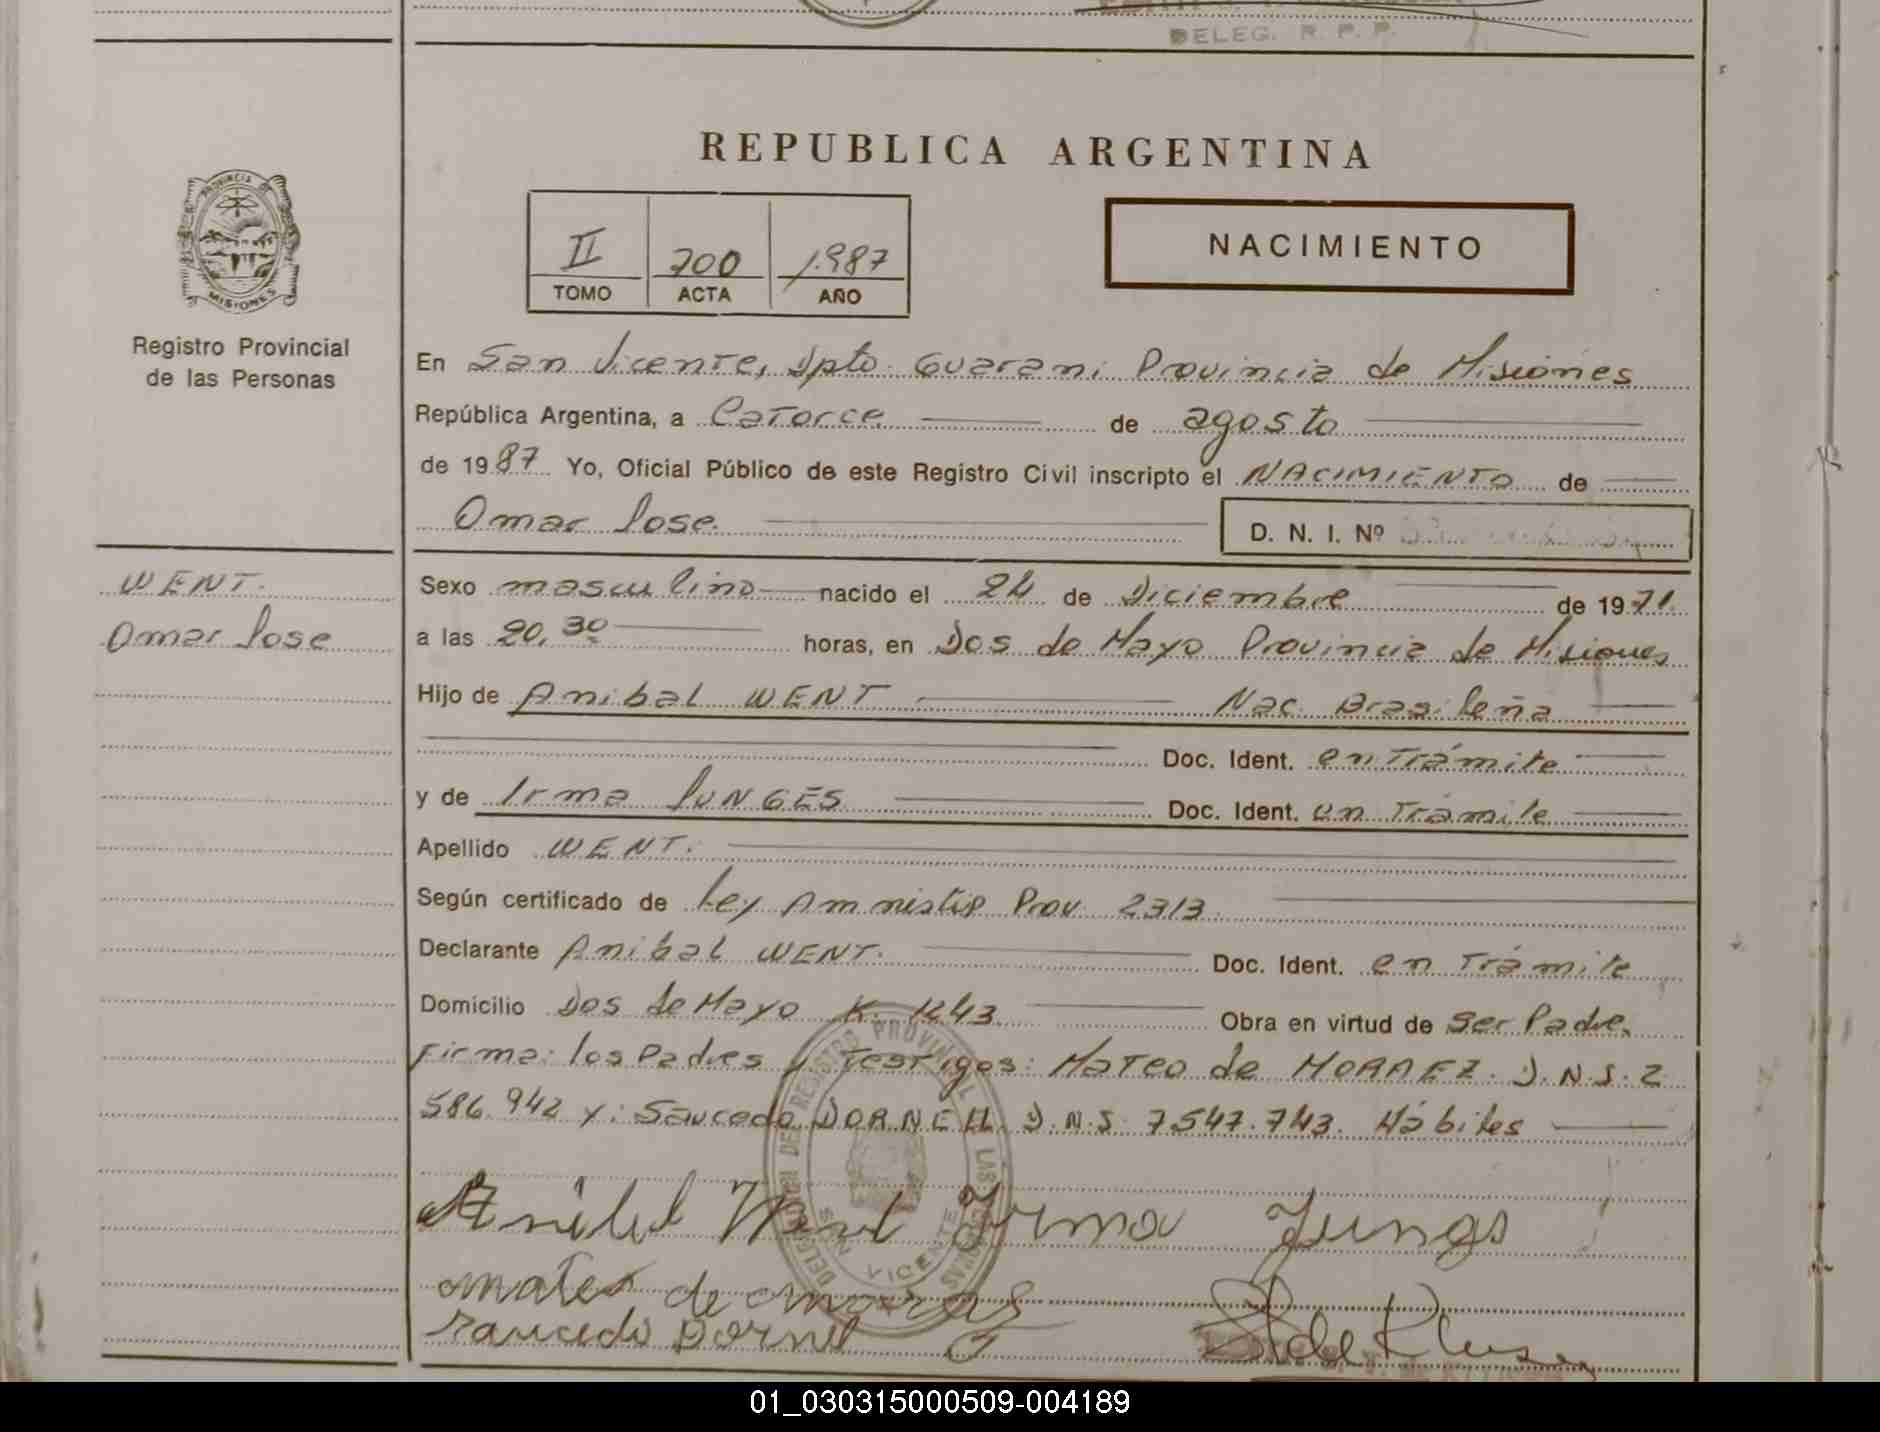 DELEG. R. P. P.
REPUBLICA ARGENTINA
II 700 1987
TOMO ACTA AÑO
NACIMIENTO
PROVINCIA DE
MISIONES
Registro Provincial
de las Personas
En San Vicente, Dpto. Guarani Provincia de Misiones
República Argentina, a Catorce de agosto
de 1987 Yo, Oficial Público de este Registro Civil inscripto el NACIMIENTO de
Omar Jose.
D. N. I. Nº
WENT.
Omar Jose
Sexo masculino nacido el 24 de Diciembre de 1971.
a las 20,30 horas, en Dos de Mayo Provincia de Misiones
Hijo de Anibal WENT Nac. Brasileña
Doc. Ident. en Trámite
y de Irma JUNGES Doc. Ident. en Trámite
Apellido WENT.
Según certificado de Ley Amnistia Prov. 2313.
Declarante Anibal WENT. Doc. Ident. en Trámite
Domicilio Dos de Mayo K. 1243 Obra en virtud de Ser Padre.
Firma: los Padres y Testigos: Mateo de MORAEZ. D.N.I. 2
586.942 y: Saucedo DORNELL D.N.I. 7.547.743. Hábiles
DELEGACION DEL REGISTRO PROVINCIAL DE LAS PERSONAS
SAN VICENTE
Anibal Went Irma Junges
mateo de moraes
saucedo Dornel
01_030315000509-004189